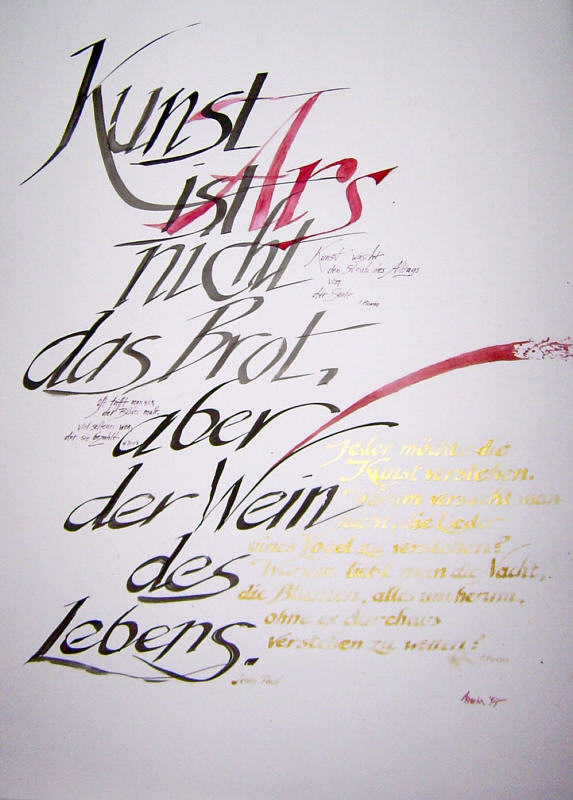 Kunst
Ars
ist
nicht
das Brot,
aber
der Wein
des
Lebens.
Jean Paul
Kunst wäscht
den Staub des Alltags
von
der Seele
oft trifft man ein
der Bilder malt,
viel seltener wen,
der sie bezahlt
Jeder möchte die
Kunst verstehen.
Warum versucht man
nicht, die Lieder
eines Vogel zu verstehen?
Warum liebt man die Nacht,
die Blumen, alles um herum,
ohne es durchaus
verstehen zu wollen?